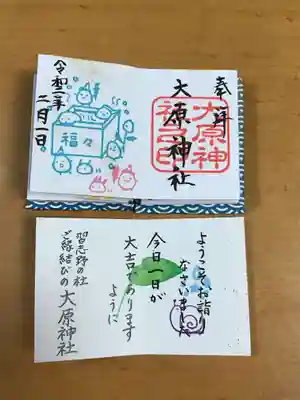 奉拝
大原神社
大原神
社之印
福々
令和二年
二月一日
ようこそお詣り
なさいました
今日一日が
大吉であります
ように
習志野の杜
ご縁結びの
大原神社